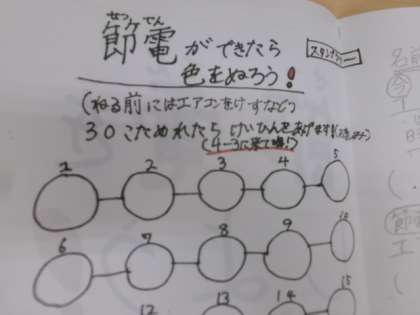 せつ でん
節電ができたら
色をぬろう!
スタンプラリー
(ねる前にはエアコンをけすなど)
30こためれたらけいひんをあげます!
(4-3に来て頂!)
1 2 3 4 5
6 7 8 9 10
12 13 14 15
名前
節
エ